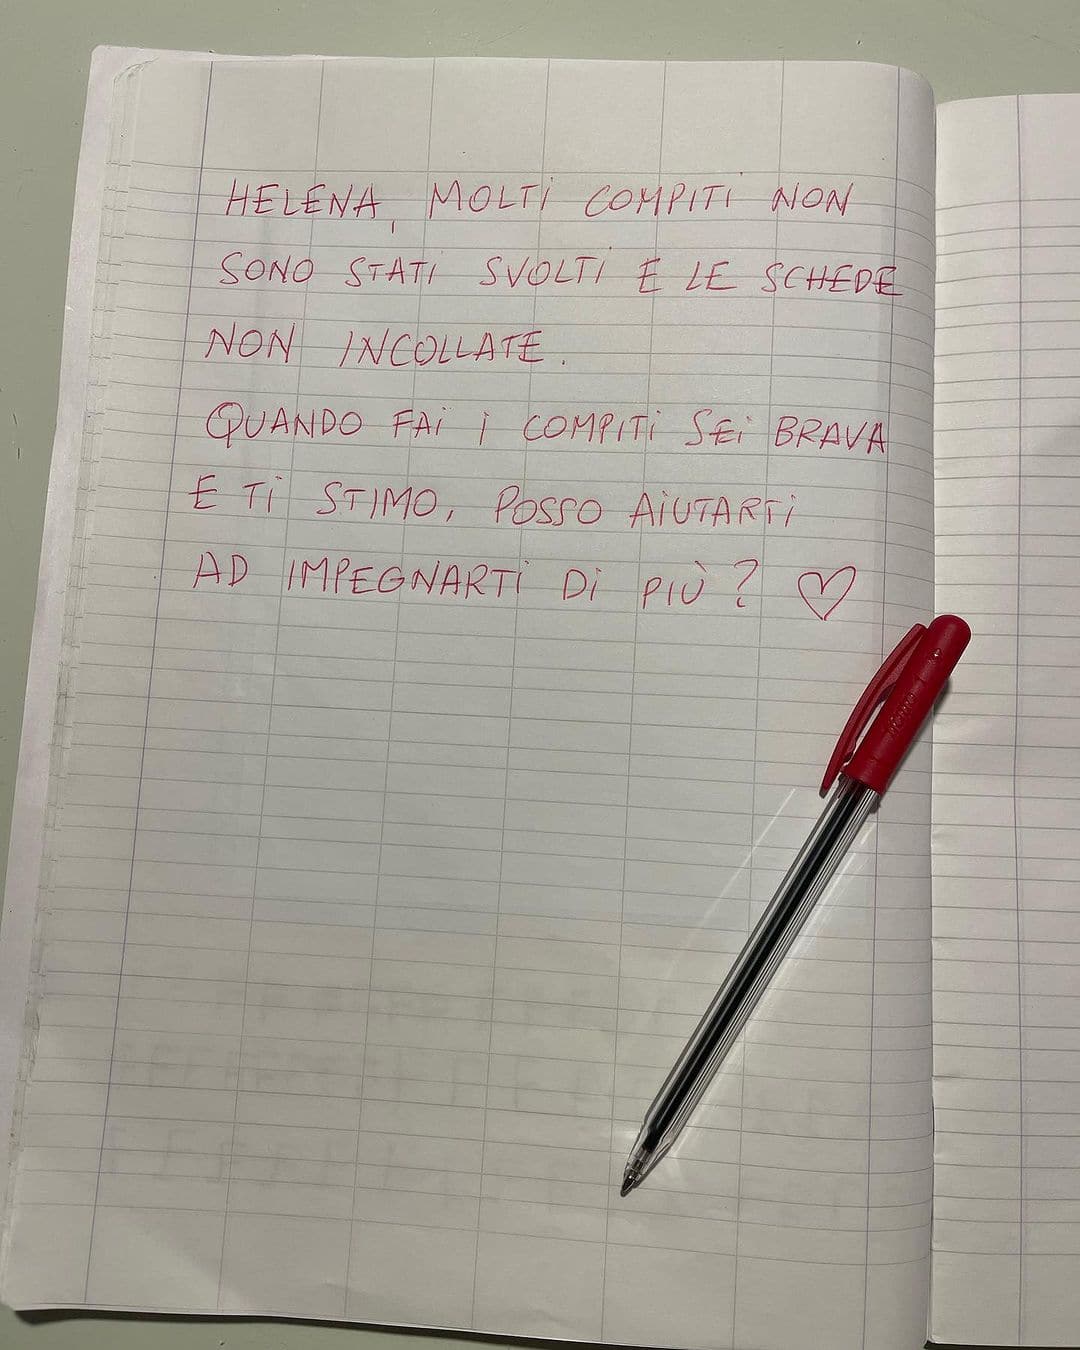 HELENA, MOLTI COMPITI NON
SONO STATI SVOLTI E LE SCHEDE
NON INCOLLATE.
QUANDO FAI I COMPITI SEI BRAVA
E TI STIMO, POSSO AIUTARTI
AD IMPEGNARTI DI PIÙ? ♡